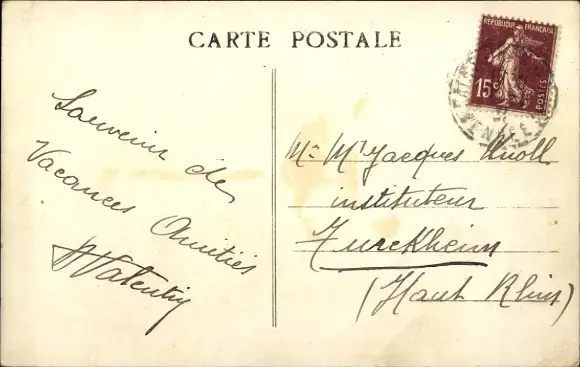 CARTE POSTALE
RÉPUBLIQUE FRANÇAISE
15c
POSTES
VENDÉE
Souvenir de
Vacances Amitiés
Valentin
Jacques Knoll
instituteur
Turckheim
(Haut Rhin)